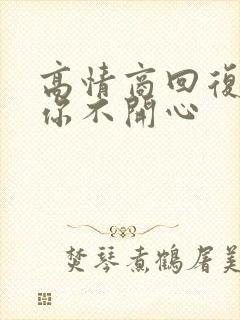 高情商回復
你不開心
焚琴煮鶴屠美